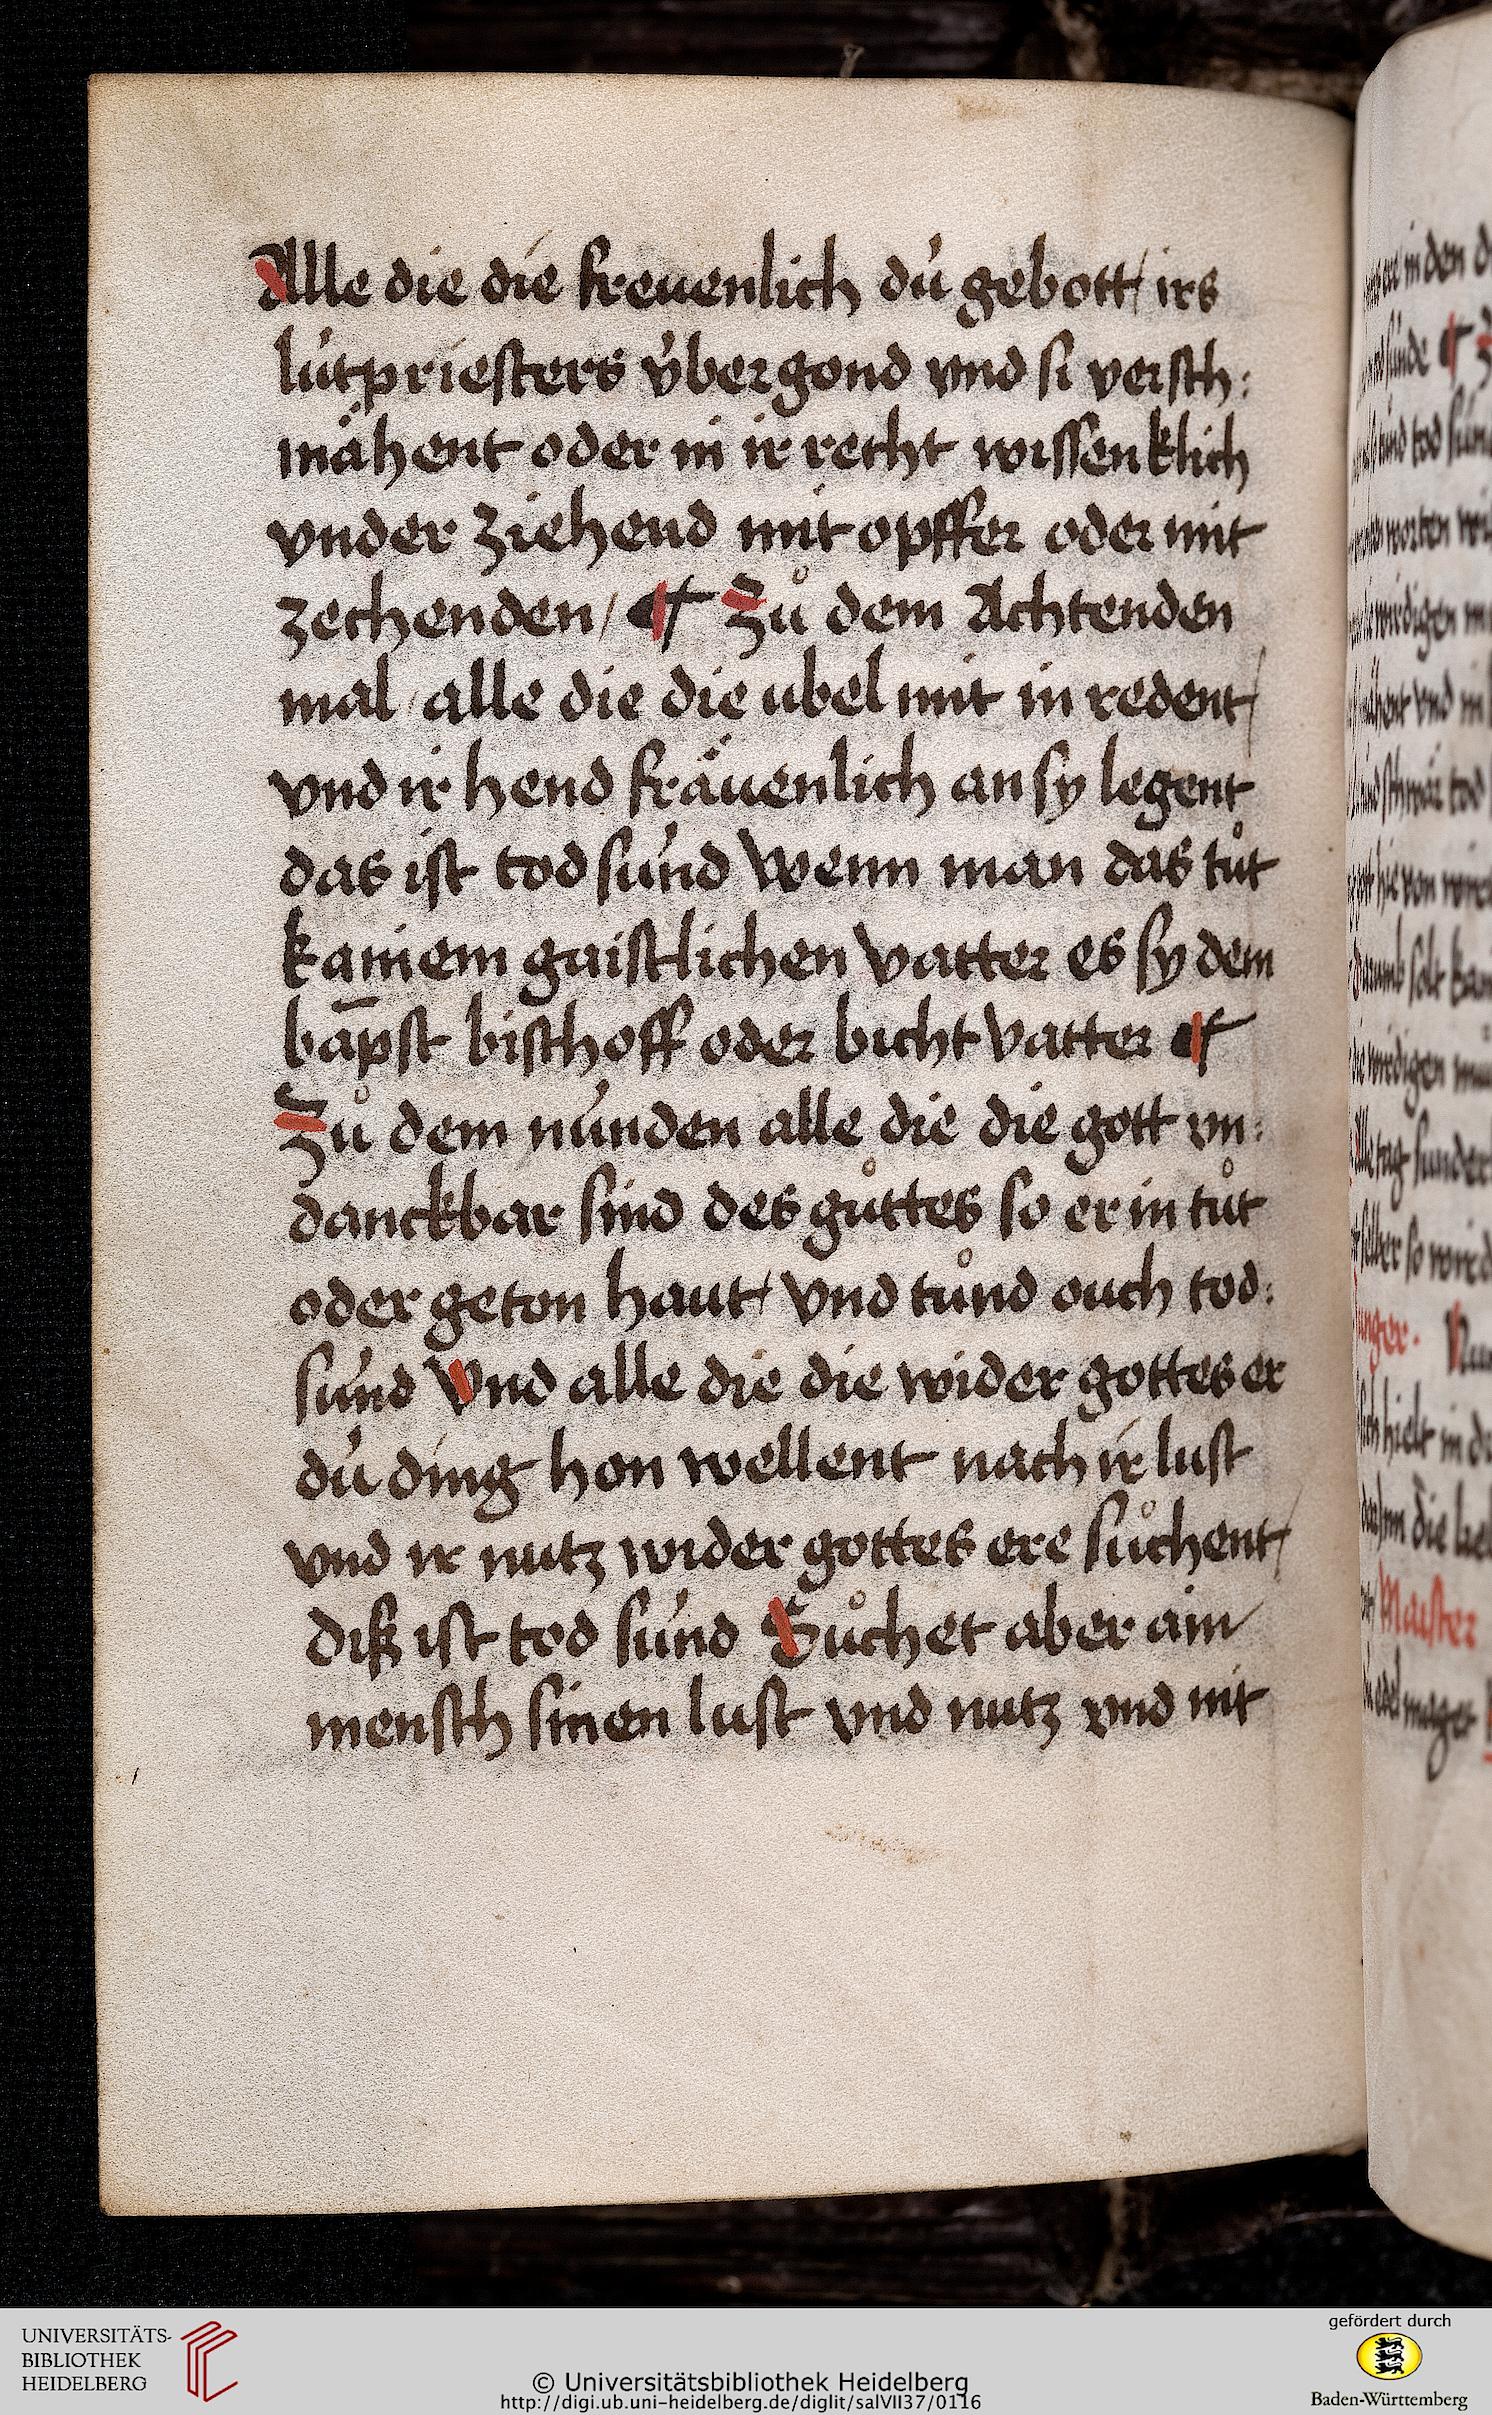 Alle die die freuenlich dú gebott / irs
lútpriesters v́ber gond vnd si versch:
mähent oder in ir recht wissenklich
vnder ziehend mit opffer oder mit
zechenden / ¶ Zů dem Achtenden
mal / alle die die übel mit in redent /
vnd ir hend fräuenlich an sy legent
das ist tod súnd wenn man das tůt
kainem gaistlichen vatter es sy dem
bāpst bischoff oder bicht vatter ¶
Zů dem núnden alle die die gott vn:
danckbar sind des gůttes so er in tůt
oder geton haut / vnd tůnd ouch tod:
súnd Vnd alle die die wider gottes er
dú ding hon wellent nach ir lust
vnd ir nutz wider gottes ere sůchent /
diß ist tod súnd Sůchet aber ain
mensch sinen lust vnd nutz vnd nit
UNIVERSITÄTS-
BIBLIOTHEK
HEIDELBERG
© Universitätsbibliothek Heidelberg
http://digi.ub.uni-heidelberg.de/diglit/salVII37/0116
gefördert durch
Baden-Württemberg